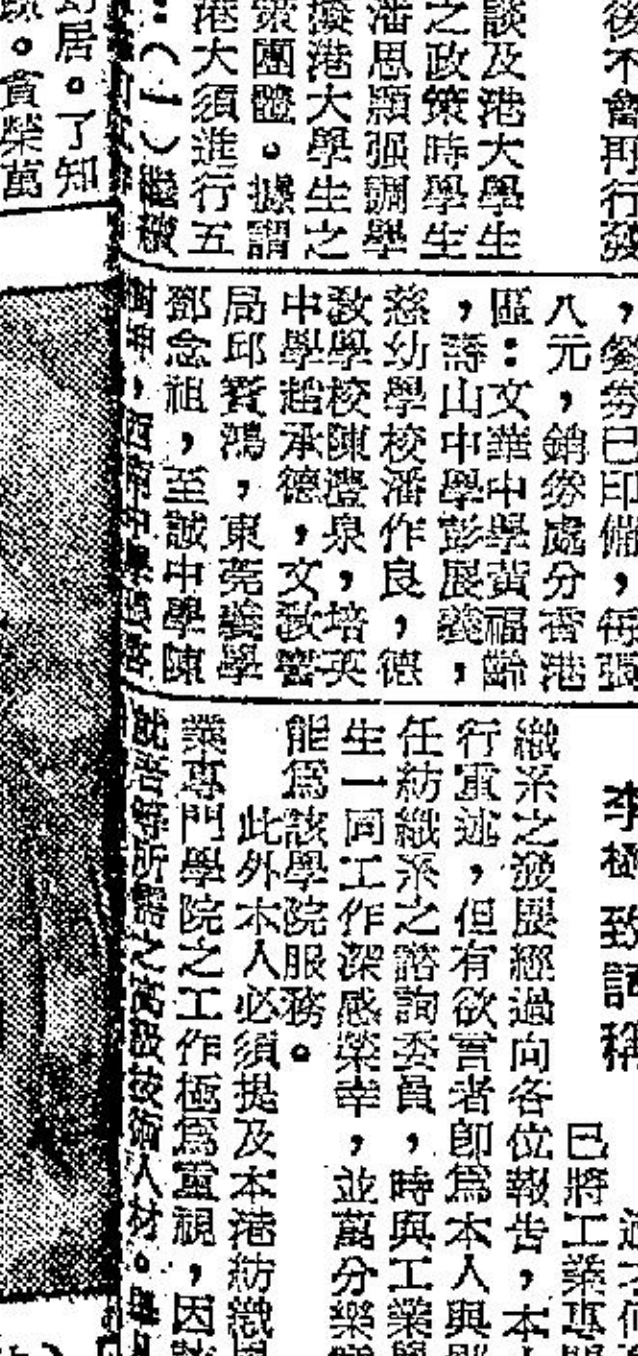 後不會再行發
談及港大學生
之政策時學生
潘思顯强調學
撥港大學生之
策團體。據謂
港大須進行五
：（一）繼續
幻居。了知
。貪榮萬
，餐券已印備，每張
八元，銷券處分香港
區：文華中學黃福齡
，壽山中學彭展義，
慈幼學校潘作良，德
教學校陳瀅泉，培英
中學趙承德，文教書
局邱賓鴻，東莞義學
鄧念祖，至誠中學陳
，西南中學
致詞稱
已將工業專
織系之發展經過向各位報告，本
行重述，但有欲言者卽爲本人與
任紡織系之諮詢委員，時與工業學
生一同工作深感榮幸，並萬分樂
能爲該學院服務。
此外本人必須提及本港紡織
業專門學院之工作極爲重視，因
所需之高級技術人材。